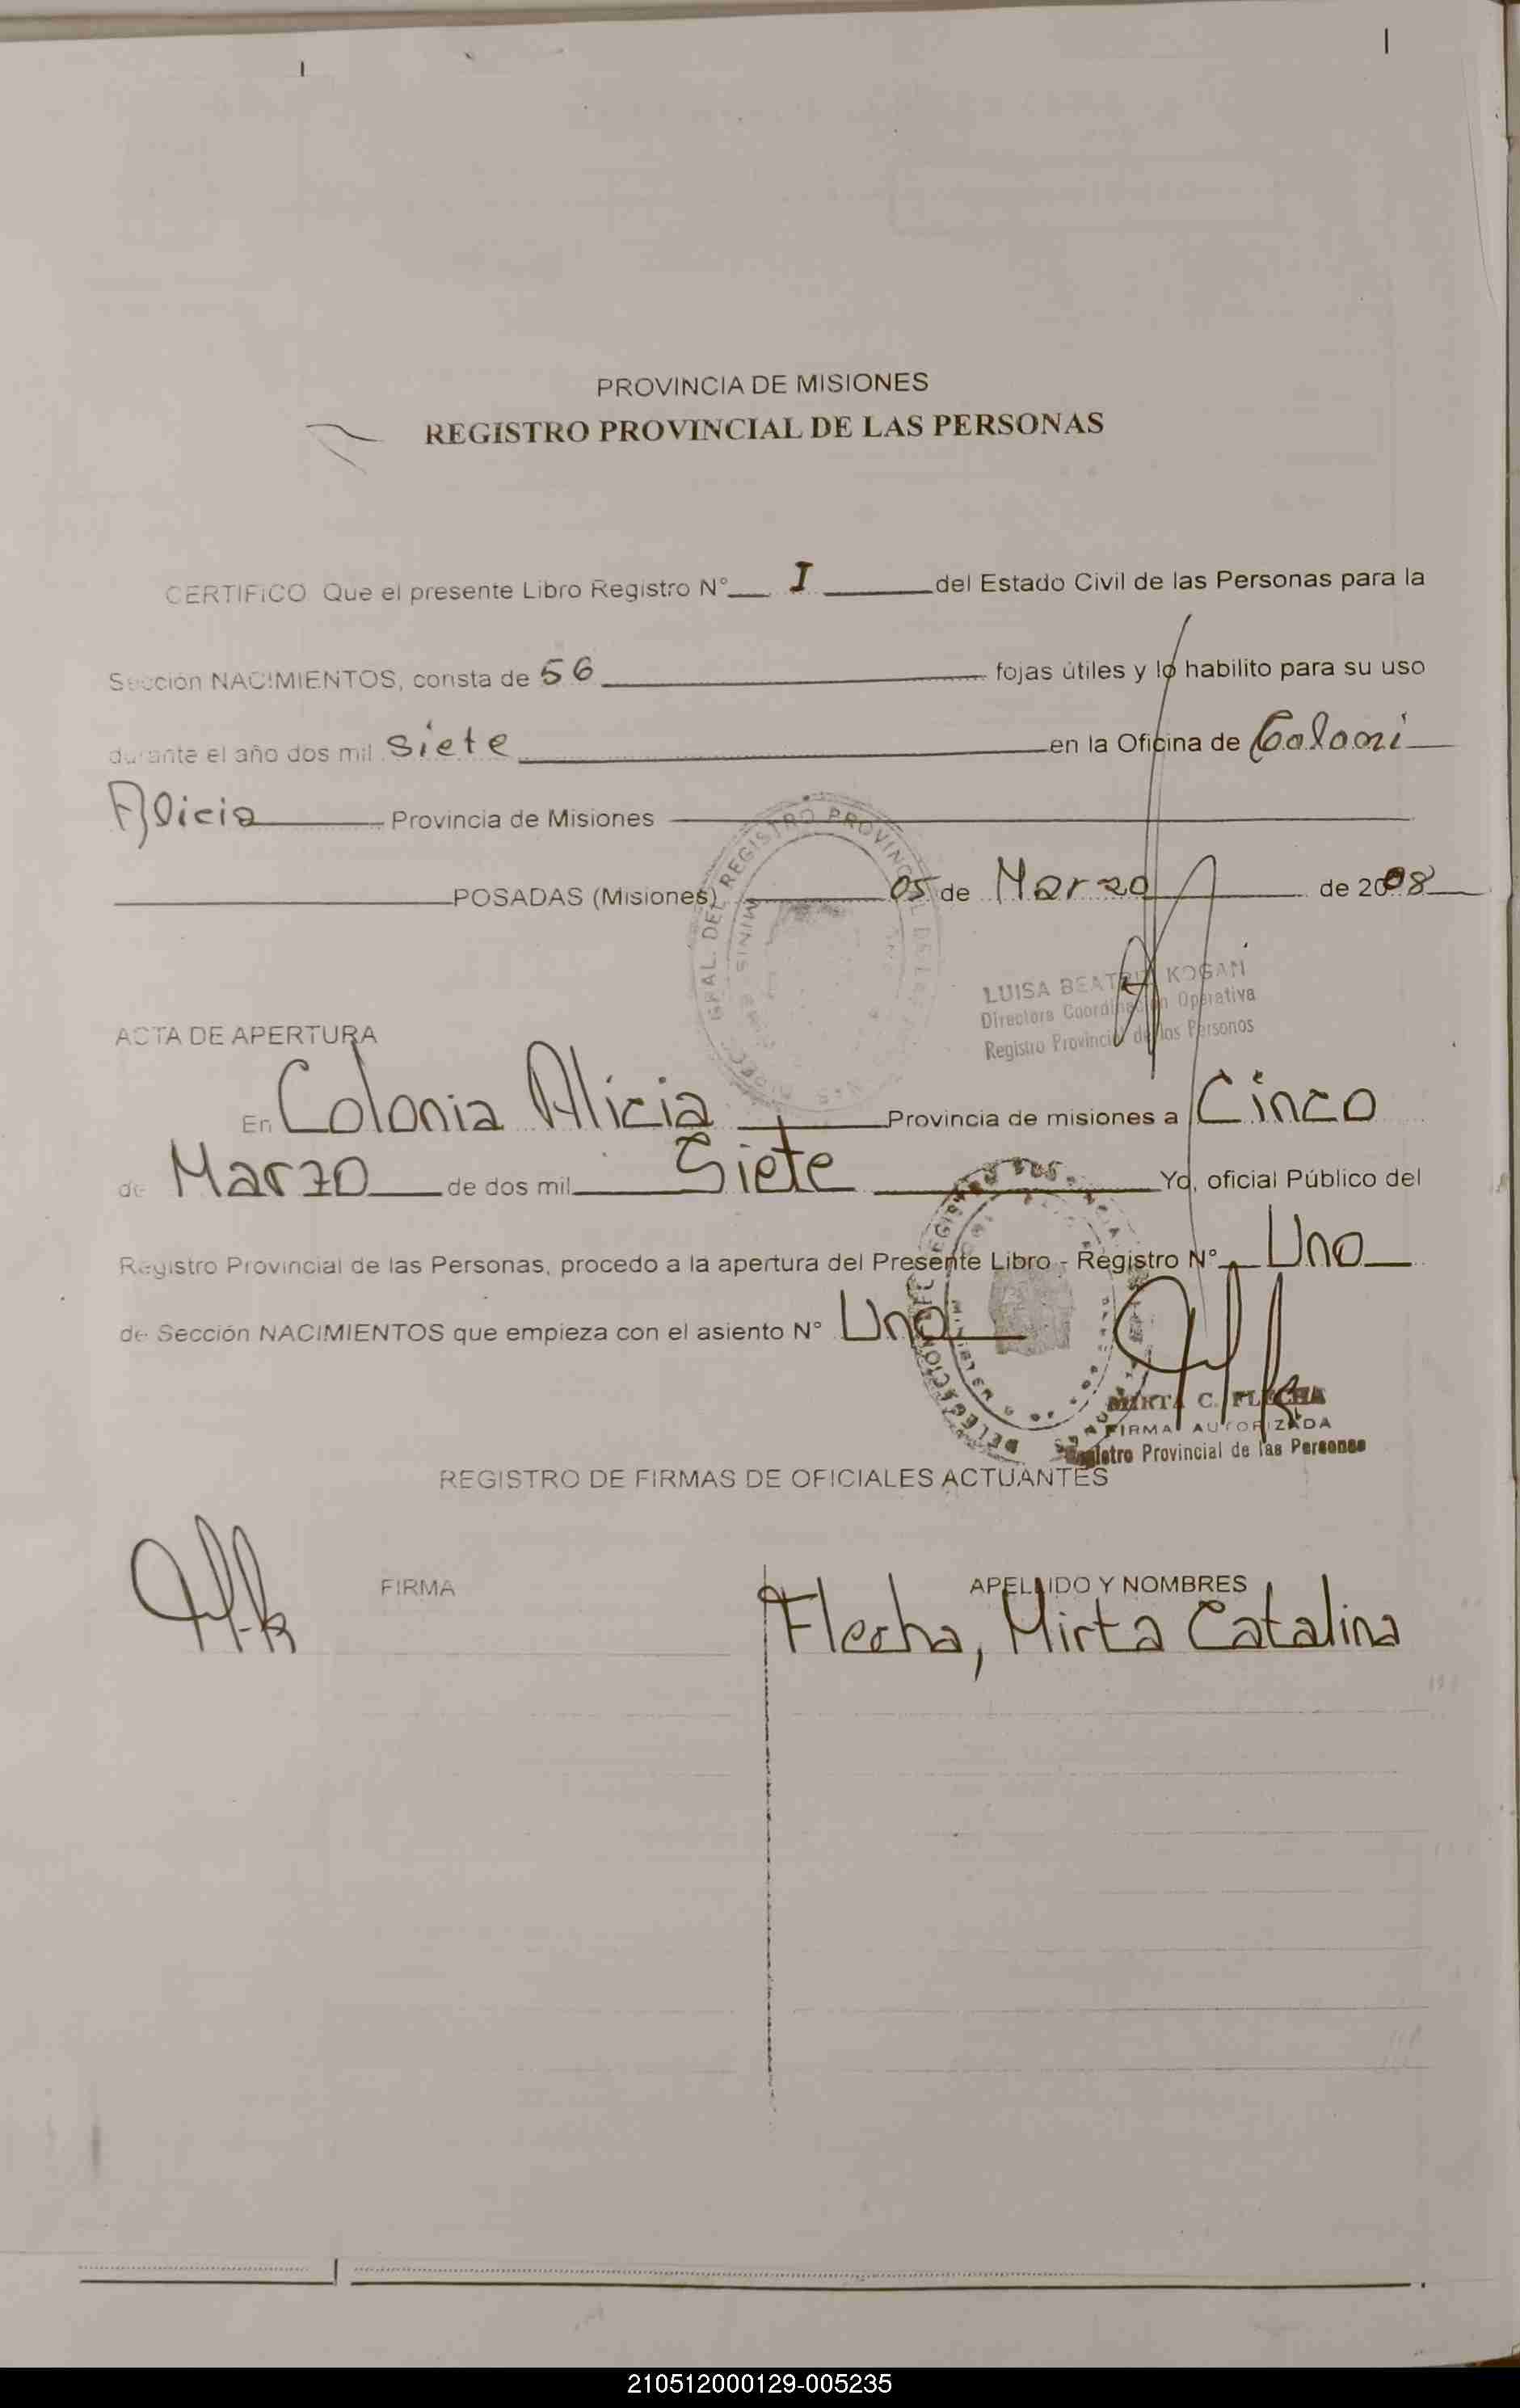 PROVINCIA DE MISIONES
REGISTRO PROVINCIAL DE LAS PERSONAS
CERTIFICO Que el presente Libro Registro N° I del Estado Civil de las Personas para la
Sección NACIMIENTOS, consta de 56 fojas útiles y lo habilito para su uso
durante el año dos mil Siete en la Oficina de Coloni
Alicia Provincia de Misiones
POSADAS (Misiones) 05 de Marzo de 2008
LUISA BEATRIZ KOGAN
Directora Coordinación Operativa
Registro Provincial de las Personas
ACTA DE APERTURA
En Colonia Alicia Provincia de misiones a Cinco
de Marzo de dos mil Siete Yo, oficial Público del
Registro Provincial de las Personas, procedo a la apertura del Presente Libro - Registro N° Uno
de Sección NACIMIENTOS que empieza con el asiento N° Uno
MIRTA C. FLECHA
FIRMA AUTORIZADA
Registro Provincial de las Personas
REGISTRO DE FIRMAS DE OFICIALES ACTUANTES
FIRMA APELLIDO Y NOMBRES
Flecha, Mirta Catalina
210512000129-005235